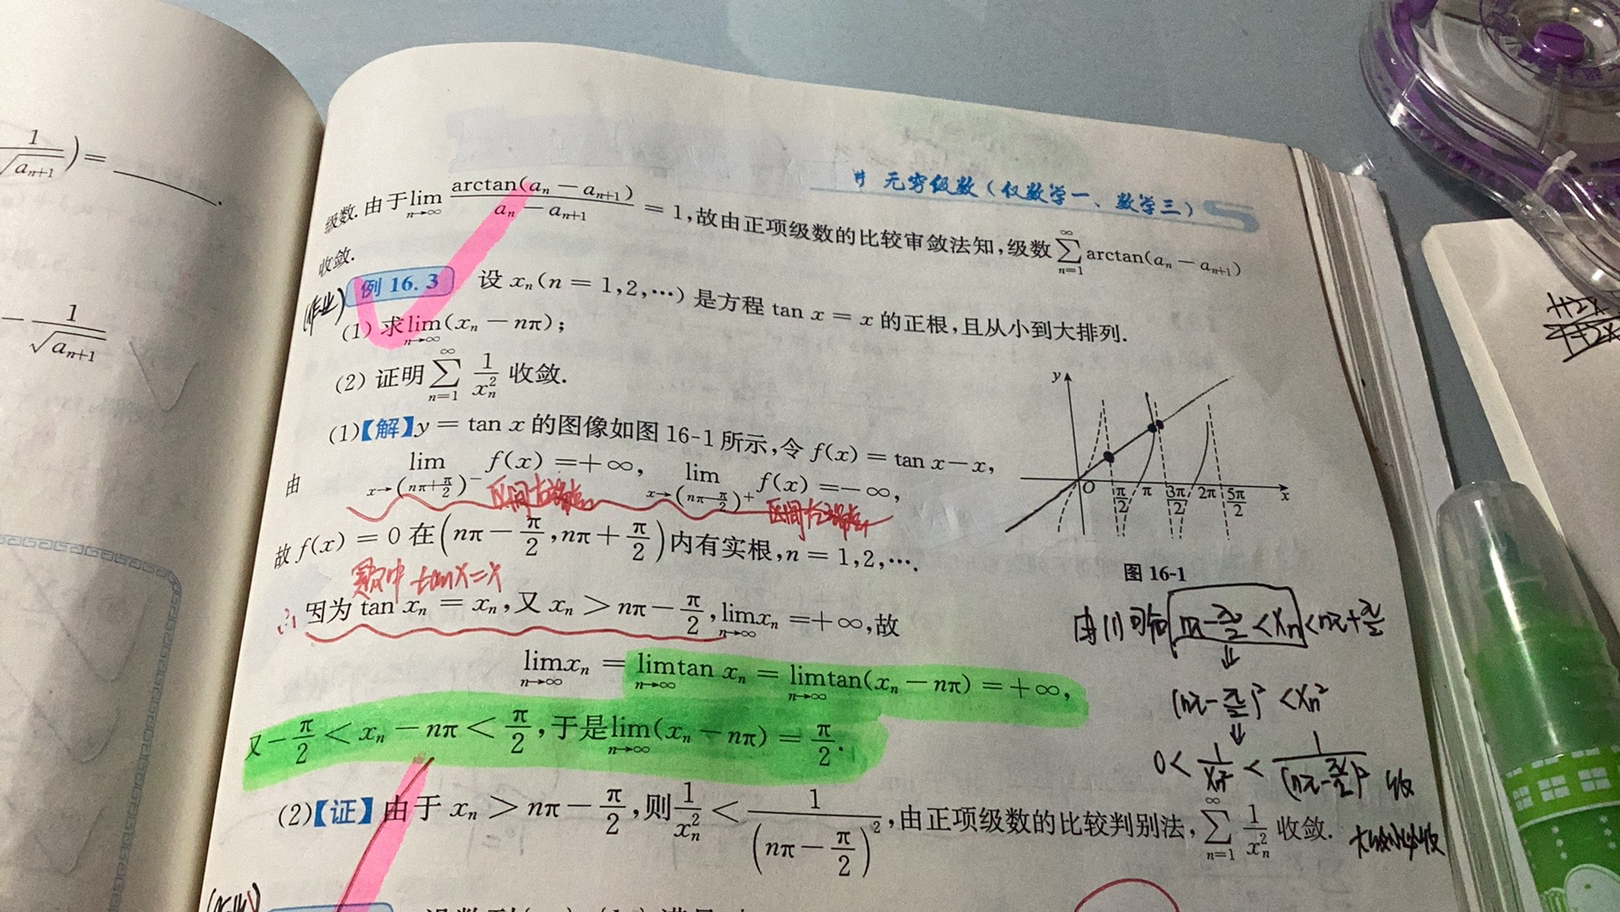 1/√a_{n+1}) = ______.
- 1/√a_{n+1}
无穷级数(仅数学一、数学三)
级数. 由于 lim_{n→∞} arctan(a_n - a_{n+1})/(a_n - a_{n+1}) = 1,故由正项级数的比较审敛法知,级数 ∑_{n=1}^{∞} arctan(a_n - a_{n+1})
收敛.
(作业)
例 16.3 设 x_n(n = 1,2,…)是方程 tan x = x 的正根,且从小到大排列.
(1) 求 lim_{n→∞}(x_n - nπ);
(2) 证明 ∑_{n=1}^{∞} 1/x_n^2 收敛.
(1)【解】y = tan x 的图像如图 16-1 所示,令 f(x) = tan x - x,
由 lim_{x→(nπ+π/2)^-} f(x) = +∞, lim_{x→(nπ-π/2)^+} f(x) = -∞,
区间右端点 区间左端点
故 f(x) = 0 在 (nπ - π/2, nπ + π/2) 内有实根,n = 1,2,….
题中 tanx=x
因为 tan x_n = x_n,又 x_n > nπ - π/2, lim_{n→∞} x_n = +∞,故
lim_{n→∞} x_n = lim_{n→∞} tan x_n = lim_{n→∞} tan(x_n - nπ) = +∞,
又 -π/2 < x_n - nπ < π/2,于是 lim_{n→∞}(x_n - nπ) = π/2.
(2)【证】由于 x_n > nπ - π/2,则 1/x_n^2 < 1/(nπ - π/2)^2,由正项级数的比较判别法, ∑_{n=1}^{∞} 1/x_n^2 收敛.
y
O π/2 π 3π/2 2π 5π/2 x
图 16-1
由(1)可知 nπ-π/2 < x_n < nπ+π/2
⇓
(nπ-π/2)^2 < x_n^2
⇓
0 < 1/x_n^2 < 1/(nπ-π/2)^2 收
大收小收